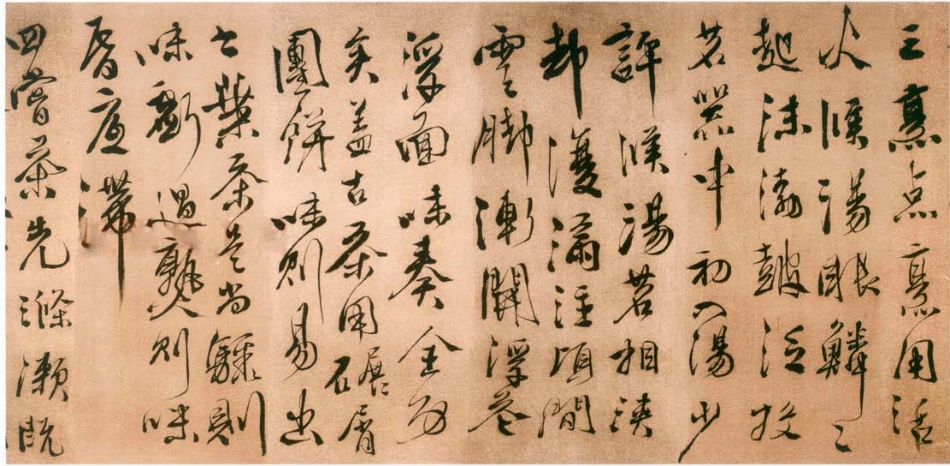 三烹点烹用活
火候湯眼鱗〻
起沫渤皷泛投
茗器中初入湯少
許候湯茗相浹
却復滿注頃間
雲腳漸開浮花
浮面味奏全功
矣盖古茶用碾屑
團餅味則易出
今葉茶是尚驟則
味虧過熟則味
昏底滯
四嘗茶先滌漱既